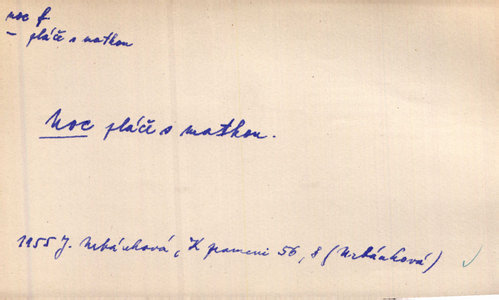 noc f
– pláče s matkou
Noc pláče s matkou.
1955 J. Urbánková, K prameni 56, 8 (Urbánková) ✓